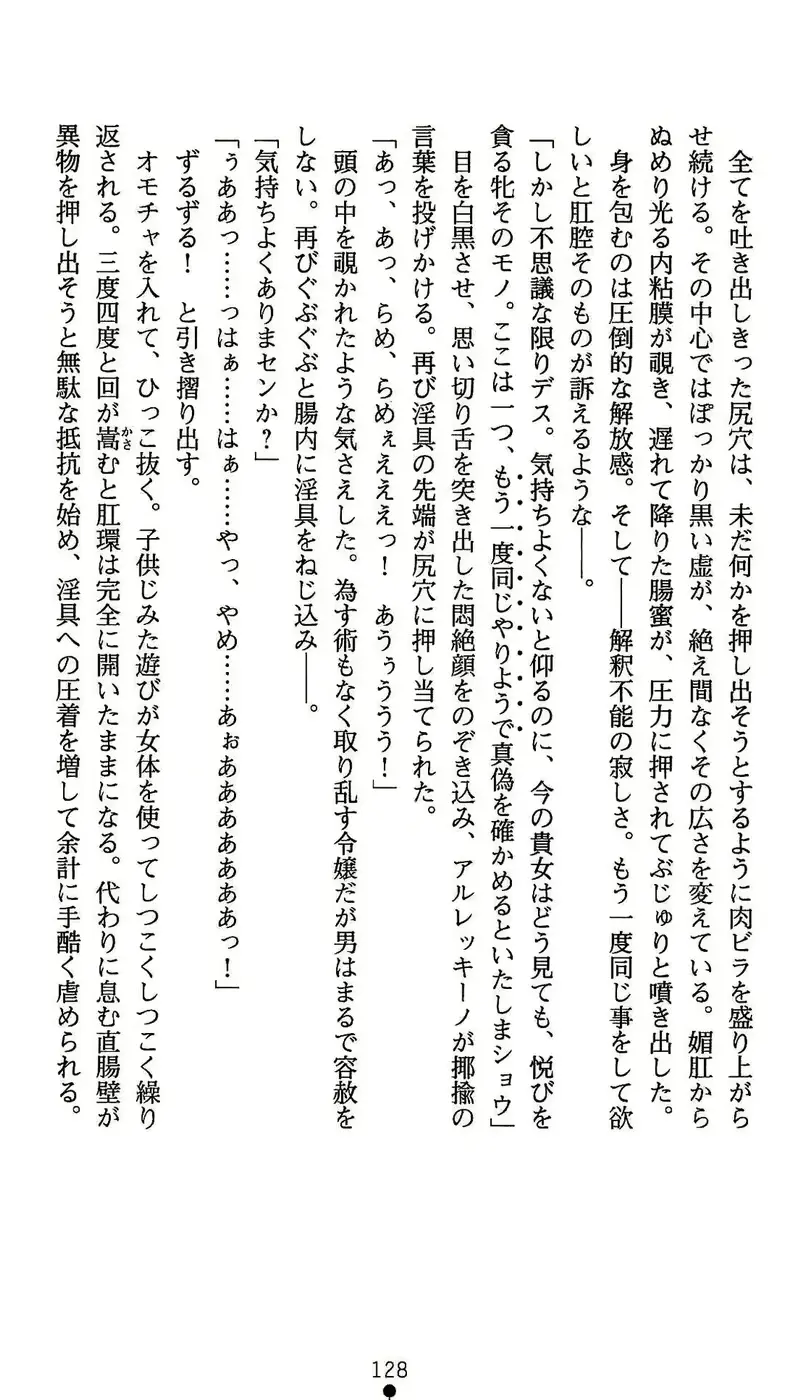 全てを吐き出しきった尻穴は、未だ何かを押し出そうとするように肉ビラを盛り上がら
せ続ける。その中心ではぽっかり黒い虚が、絶え間なくその広さを変えている。媚肛から
ぬめり光る内粘膜が覗き、遅れて降りた腸蜜が、圧力に押されてぶじゅりと噴き出した。
身を包むのは圧倒的な解放感。そして――解釈不能の寂しさ。もう一度同じ事をして欲
しいと肛腔そのものが訴えるような――。
「しかし不思議な限りデス。気持ちよくないと仰るのに、今の貴女はどう見ても、悦びを
貪る牝そのモノ。ここは一つ、もう一度同じやりようで真偽を確かめるといたしまショウ」
目を白黒させ、思い切り舌を突き出した悶絶顔をのぞき込み、アルレッキーノが揶揄の
言葉を投げかける。再び淫具の先端が尻穴に押し当てられた。
「あっ、あっ、らめ、らめぇえええっ！　あうぅううう！」
頭の中を覗かれたような気さえした。為す術もなく取り乱す令嬢だが男はまるで容赦を
しない。再びぐぶぐぶと腸内に淫具をねじ込み――。
「気持ちよくありまセンか？」
「ぅああっ……っはぁ……はぁ……やっ、やめ……あぉああああああああっ！」
ずるずる！　と引き摺り出す。
オモチャを入れて、ひっこ抜く。子供じみた遊びが女体を使ってしつこくしつこく繰り
返される。三度四度と回が嵩かさむと肛環は完全に開いたままになる。代わりに息む直腸壁が
異物を押し出そうと無駄な抵抗を始め、淫具への圧着を増して余計に手酷く虐められる。
128